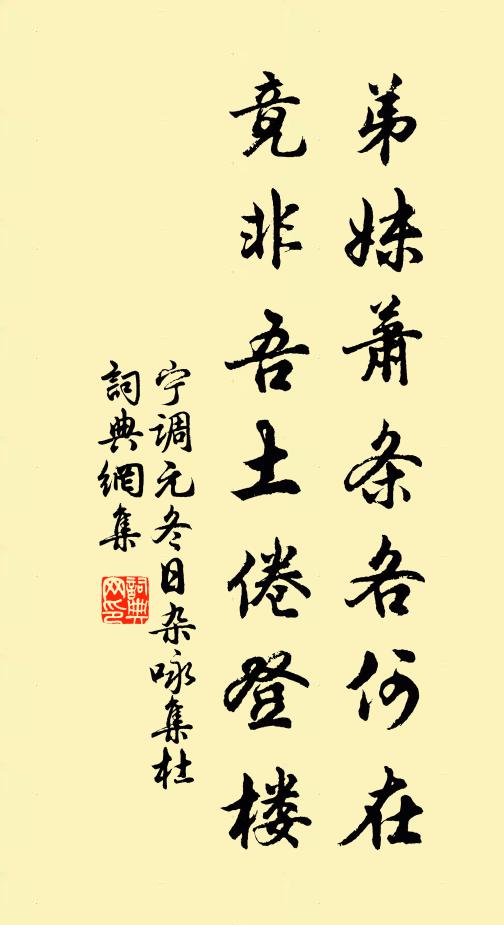 弟妹萧条各何在
竟非吾土倦登楼
宁调元冬日杂咏集杜
詞典網集
詞典
网印